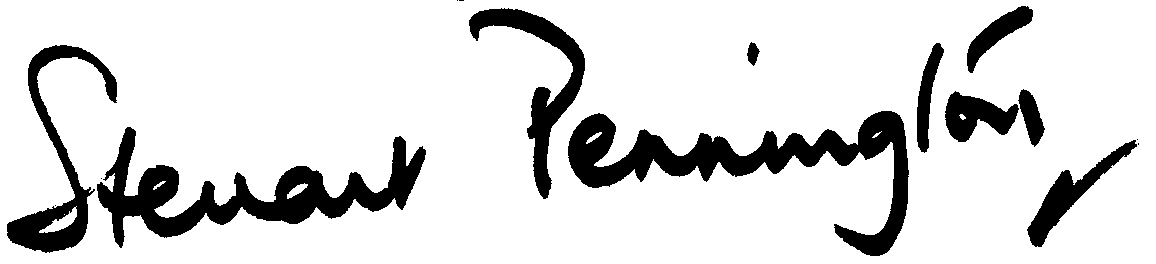 Steuart Pennington